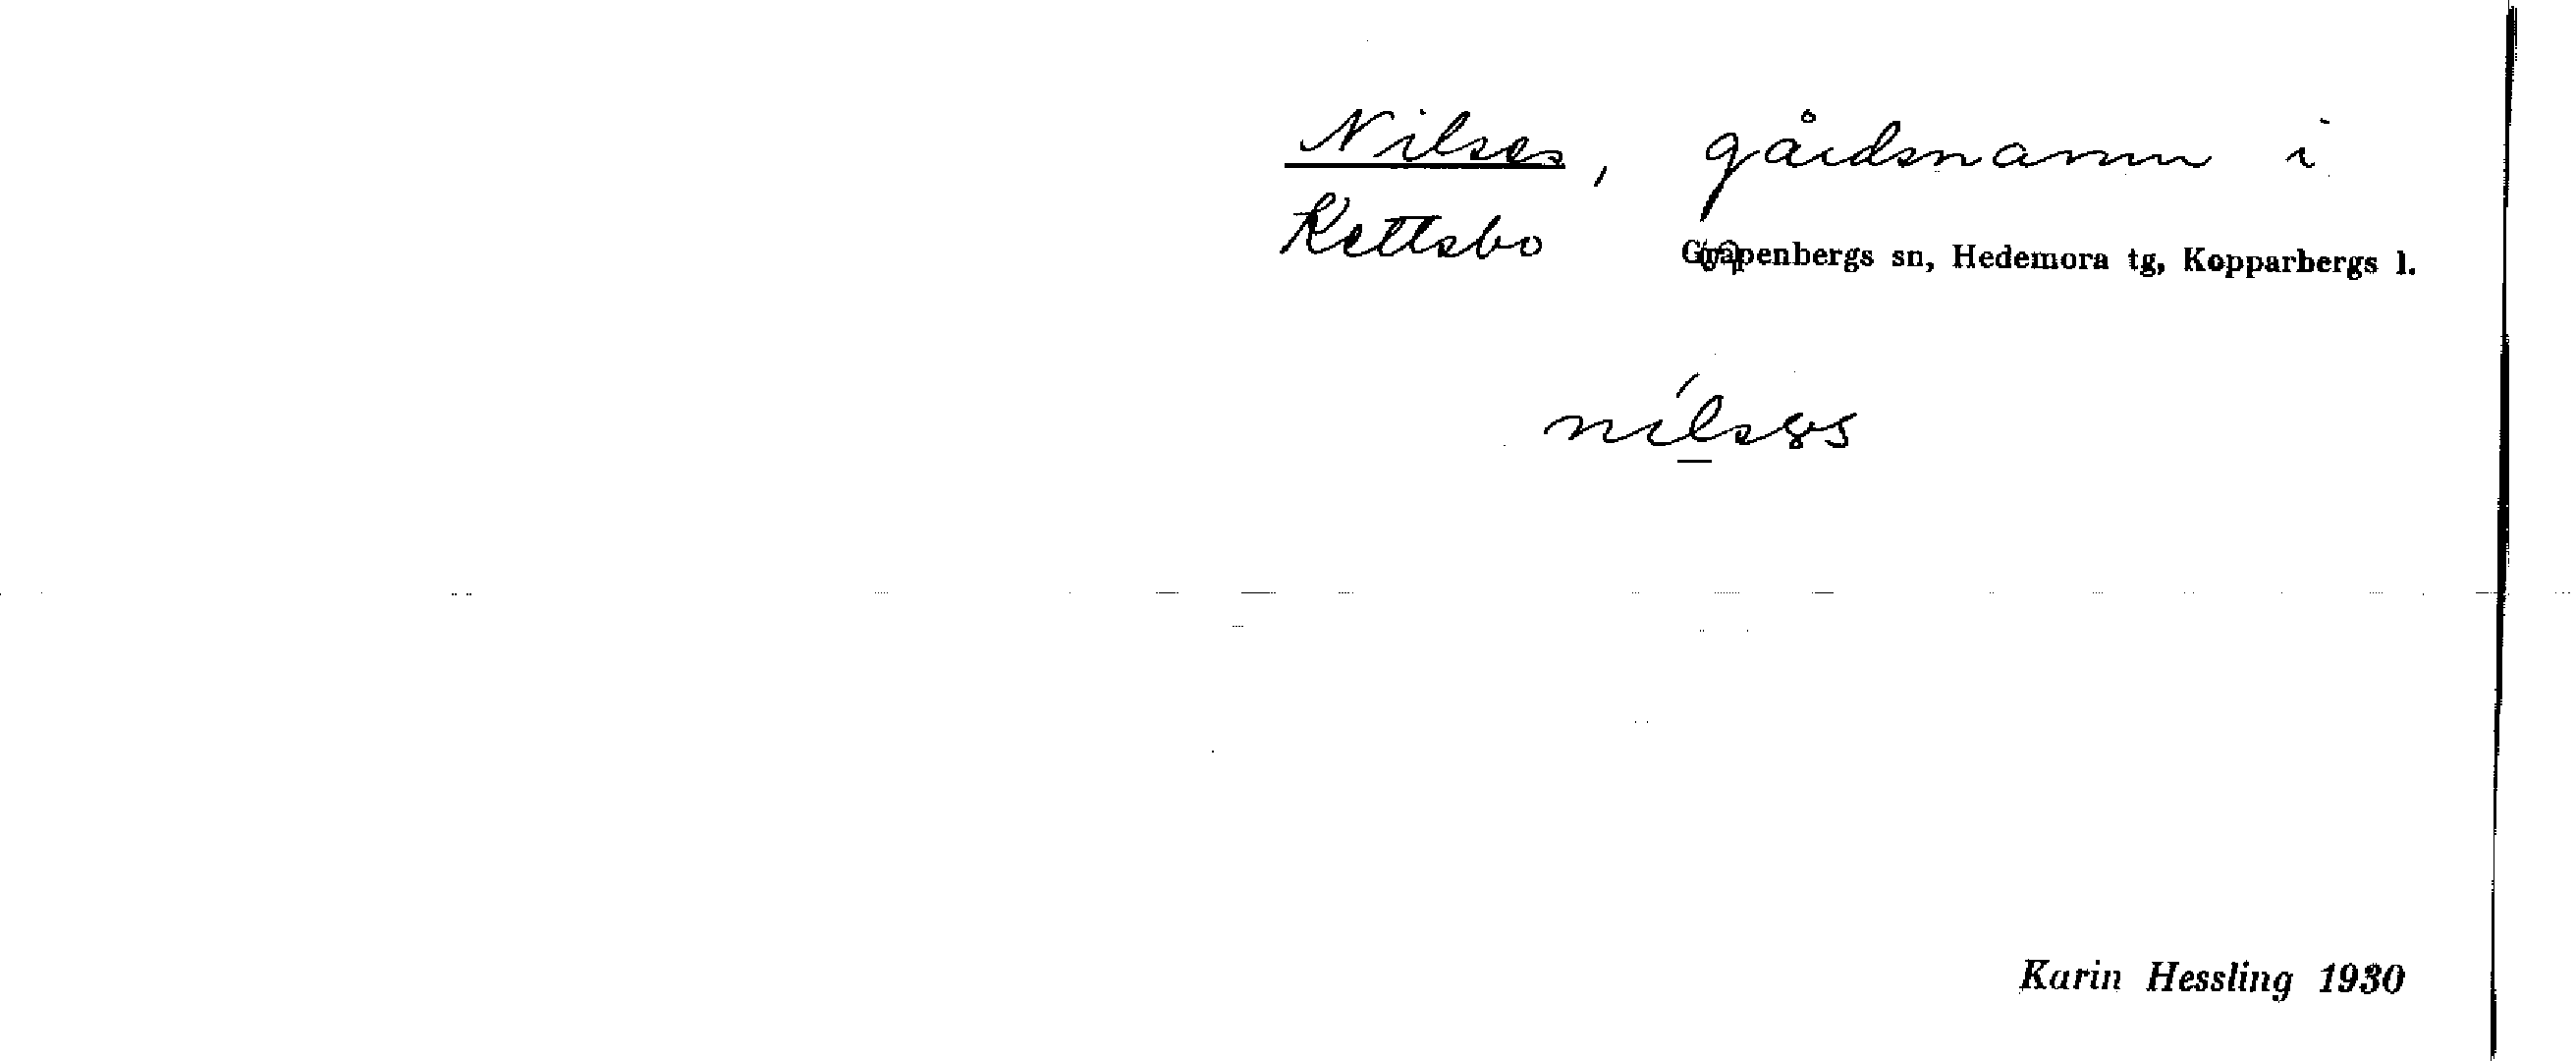 Nilses, gårdsnamn i
Kettsbo Garpenbergs sn, Hedemora tg, Kopparbergs l.
Karin Hessling 1930